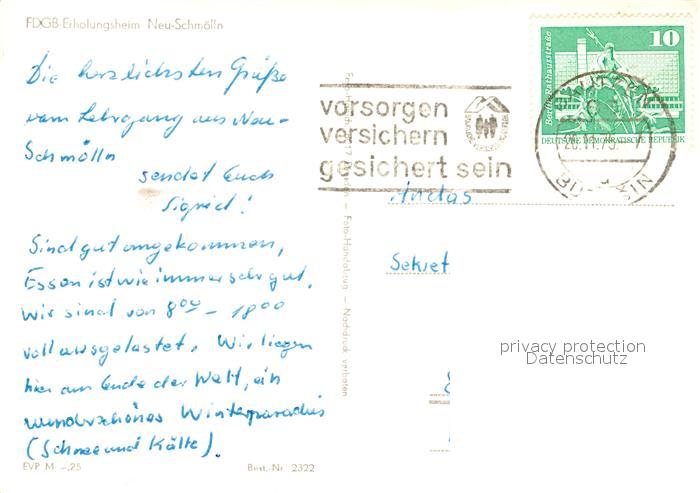 FDGB-Erholungsheim Neu-Schmölln
Die herzlichsten Grüße
vom Lehrgang aus Neu-
Schmölln
sendet Euch
Sigrid!
Sind gut angekommen,
Essen ist wie immer sehr gut.
Wir sind von 8⁰⁰ – 18⁰⁰
voll ausgelastet. Wir liegen
hier am Ende der Welt, ein
wunderschönes Winterparadies
(Schnee und Kälte).
EVP M –,25
Best.-Nr. 2322
Foto-Handabzug – Nachdruck verboten
vorsorgen
versichern
gesichert sein
10
Berlin, Rathausstraße
DEUTSCHE DEMOKRATISCHE REPUBLIK
An das
Sekret
privacy protection
Datenschutz